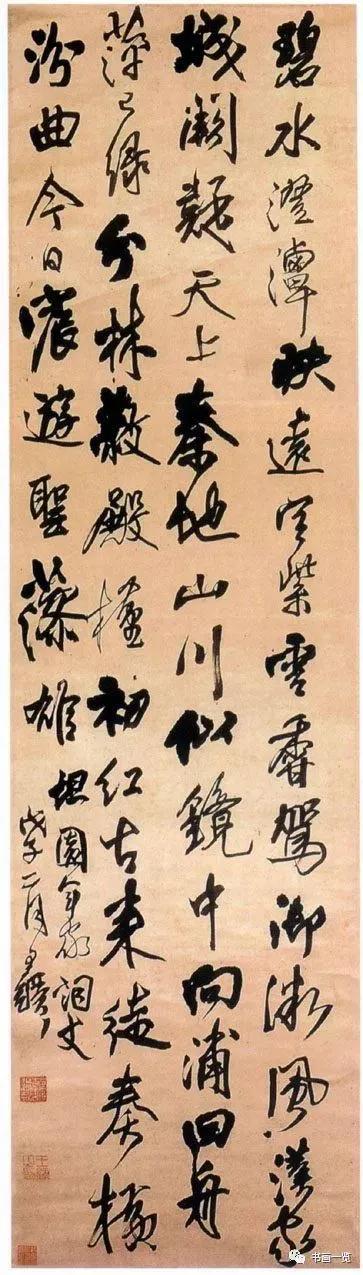 碧水澄潭映遠空紫雲香駕御微風漢家
城闕疑天上秦地山川似鏡中向浦回舟
萍已綠分林蔽殿槿初紅古来徒奏橫
汾曲今日宸遊聖藻雄 坦園年家詞丈
戊子二月王鐸
书画一览